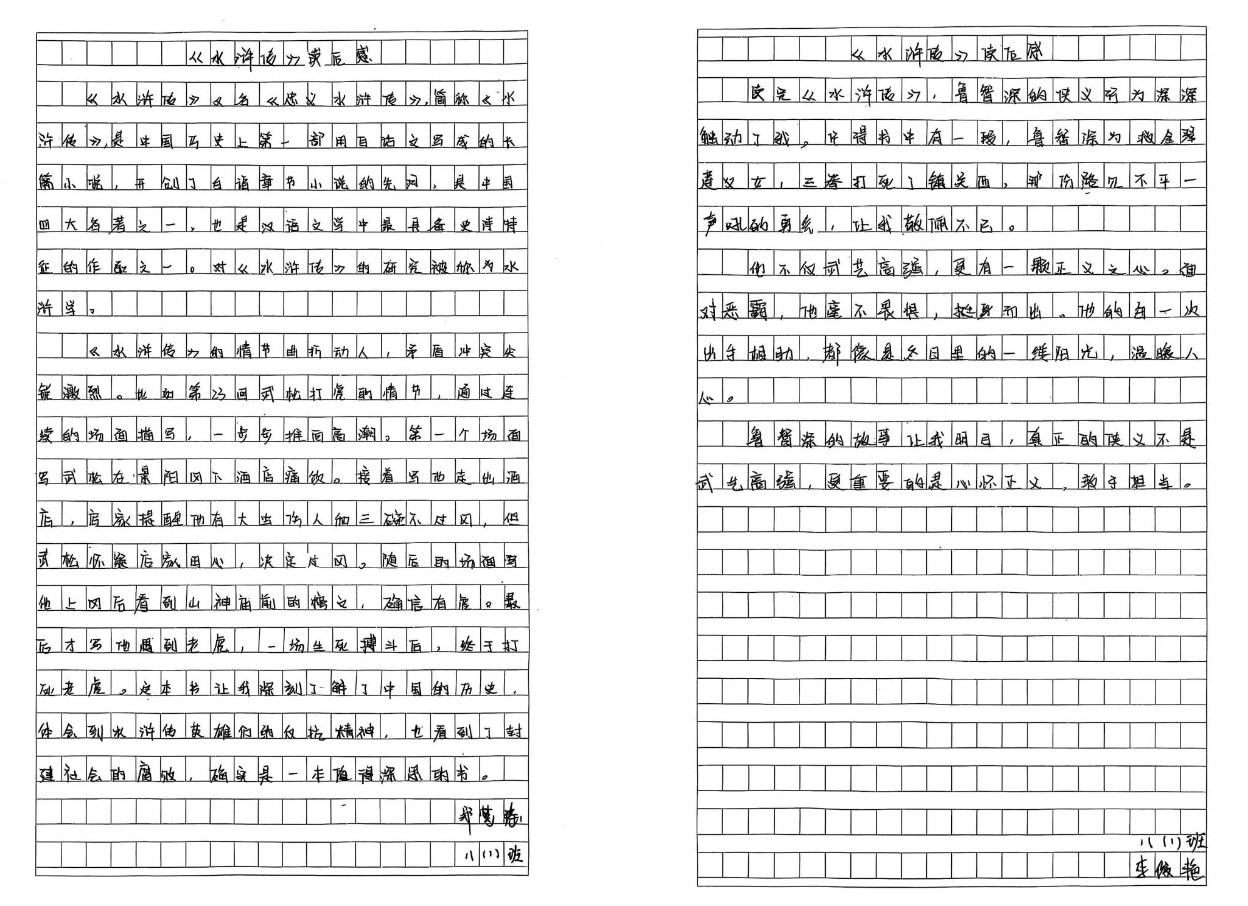 《水浒传》读后感
《水浒传》又名《忠义水浒传》,简称《水
浒传》,是中国历史上第一部用白话文写成的长
篇小说，开创了白话章节小说的先河，是中国
四大名著之一，也是汉语文学中最具备史诗特
征的作品之一。对《水浒传》的研究被称为水
浒学。
《水浒传》的情节曲折动人，矛盾冲突尖
锐激烈。比如第23回武松打虎的情节，通过连
续的场面描写，一步步推向高潮。第一个场面
写武松在景阳冈下酒店痛饮。接着写他走出酒
店，店家提醒他有大虫伤人和三碗不过冈，但
武松怀疑店家用心，决定过冈。随后的场面写
他上冈后看到山神庙前的榜文，确信有虎。最
后才写他遇到老虎，一场生死搏斗后，终于打
死老虎。这本书让我深刻了解了中国的历史，
体会到水浒传英雄们的反抗精神，也看到了封
建社会的腐败，确实是一本值得深思的书。
邓
八(1)班
《水浒传》读后感
读完《水浒传》，鲁智深的侠义行为深深
触动了我。记得书中有一段，鲁智深为救金翠
莲父女，三拳打死了镇关西，那份路见不平一
声吼的勇气，让我敬佩不已。
他不仅武艺高强，更有一颗正义之心。面
对恶霸，他毫不畏惧，挺身而出。他的每一次
出手相助，都像是冬日里的一缕阳光，温暖人
心。
鲁智深的故事让我明白，真正的侠义不是
武艺高强，更重要的是心怀正义，敢于担当。
八(1)班
李俊艳